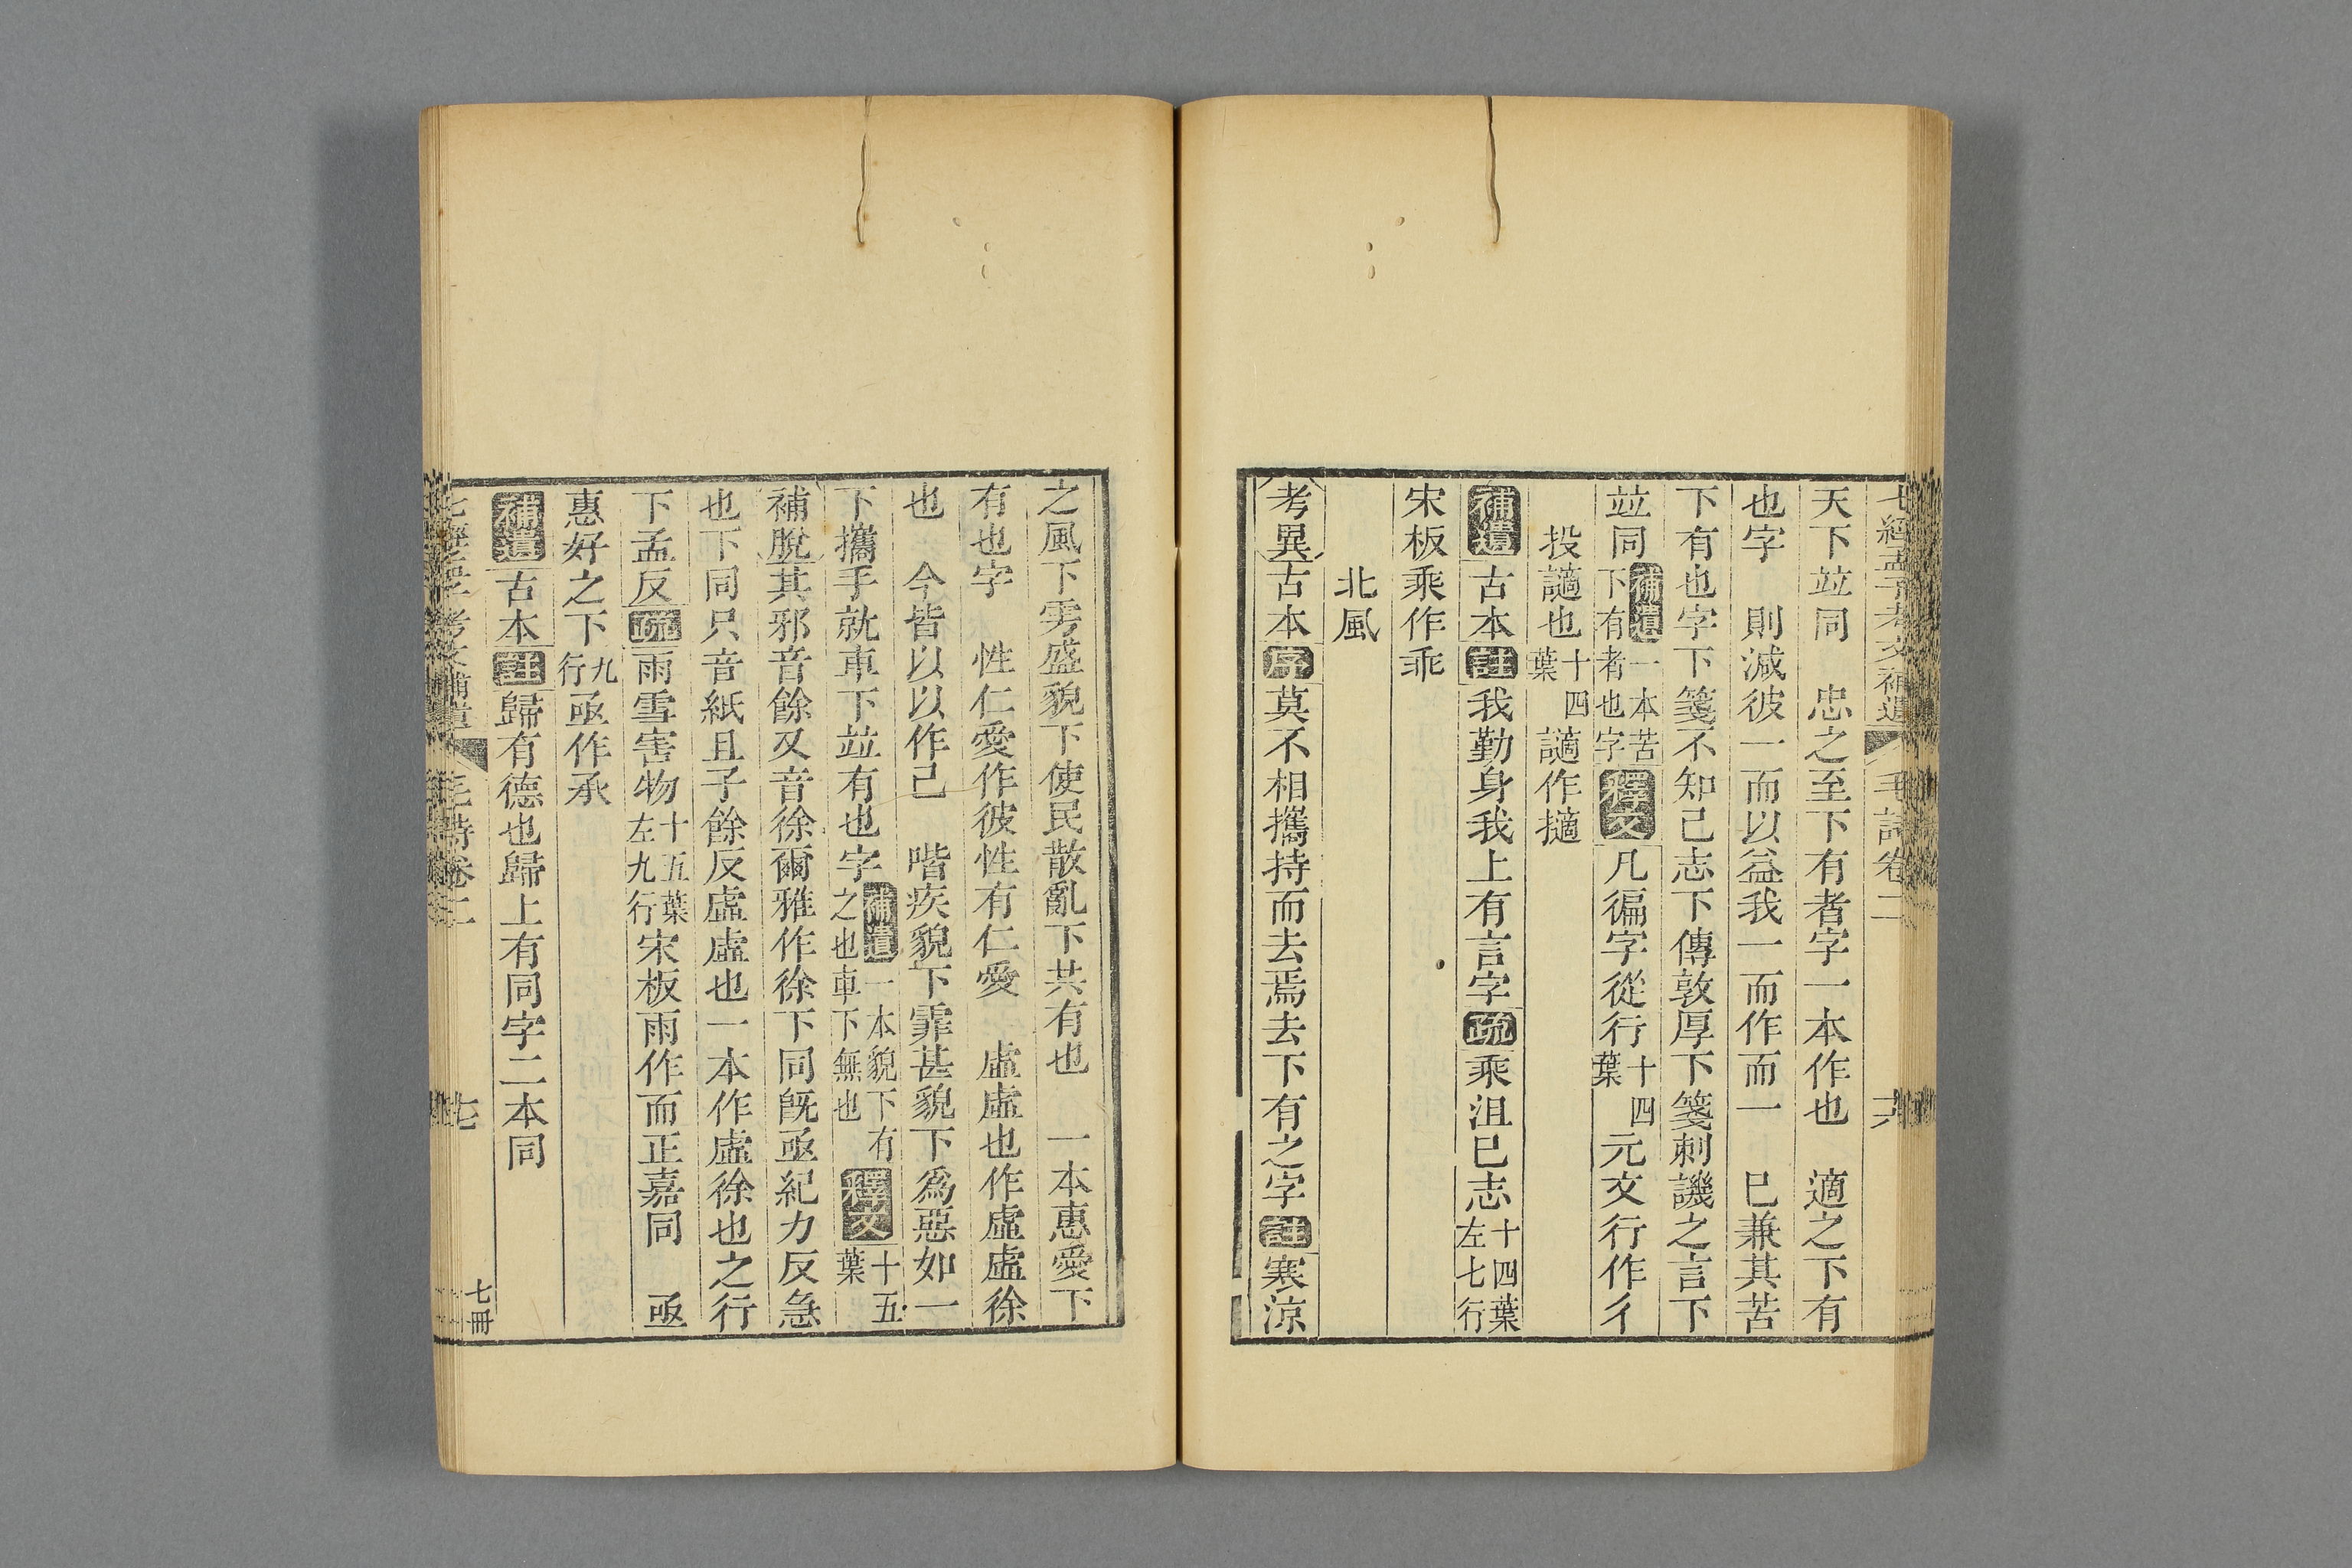 七經孟子考文補遺 毛詩卷二 六
天下竝同 忠之至下有者字一本作也 適之下有
也字 則減彼一而以益我一而作而一 巳兼其苦
下有也字下箋不知己志下傳敦厚下箋刺譏之言下
竝同 補遺 一本苦下有者也字 釋文 凡徧字從行 十四葉 元文行作彳
投讁也 十四葉 讁作擿
補遺 古本 註 我勤身我上有言字 疏 乘沮巳志 十四葉左七行
宋板乘作乖
北風
考異 古本 序 莫不相攜持而去焉去下有之字 註 寒涼
之風下雱盛貌下使民散亂下共有也 一本惠愛下
有也字 性仁愛作彼性有仁愛 虛虛也作虛虛徐
也 今皆以以作己 喈疾貌下霏甚貌下爲惡如一
下攜手就車下竝有也字 補遺 一本貌下有之也車下無也 釋文 十五葉
補脫其邪音餘又音徐爾雅作徐下同旣亟紀力反急
也下同只音紙且子餘反虛虛也一本作虛徐也之行
下孟反 疏 雨雪害物 十五葉左九行 宋板雨作而正嘉同 亟
惠好之下 九行 亟作承
補遺 古本 註 歸有德也歸上有同字二本同
考文補遺 毛詩卷二 七 七冊